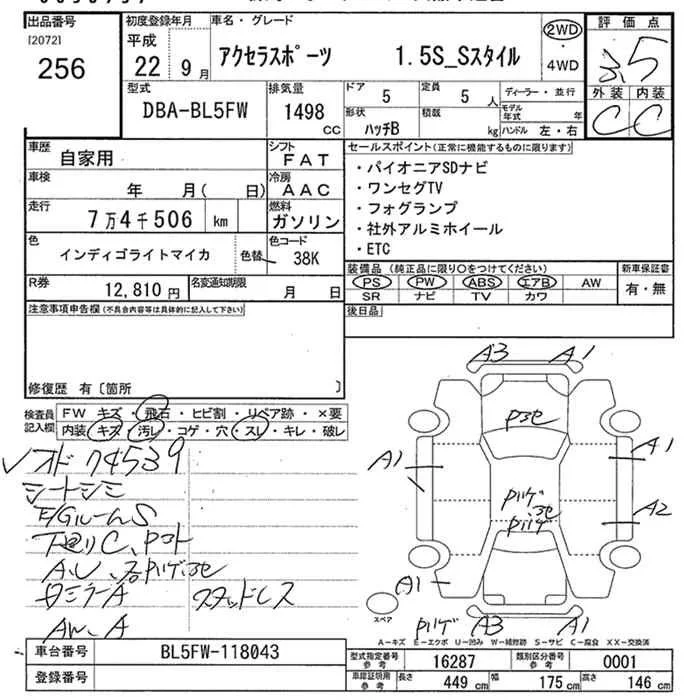 出品番号
[2072]
256
初度登録年月
平成
22年 9月
車名・グレード
アクセラスポーツ 1.5S_Sスタイル
2WD
・
4WD
評価点
3.5
外装 内装
C C
型式
DBA-BL5FW
排気量
1498
CC
ドア
5
定員
5 人
形状
ハッチB
積載
kg
ディーラー・並行
モデル年式 年
ハンドル 左・右
車歴
自家用
シフト
FAT
車検
年 月( 日)
冷房
AAC
走行
7万4千506 km
燃料
ガソリン
色
インディゴライトマイカ
色替
色コード
38K
R券
12,810 円
名変通知期限
月 日
セールスポイント(正常に機能するものに限ります)
・パイオニアSDナビ
・ワンセグTV
・フォグランプ
・社外アルミホイール
・ETC
装備品(純正品に限り○をつけてください)
PS PW ABS エアB AW
SR ナビ TV カワ
新車保証書
有・無
後日品
注意事項申告欄(不具合内容等は具体的に記入して下さい)
修復歴 有〔箇所 〕
検査員記入欄
FW キズ・飛石・ヒビ割・リペア跡・×要
内装 キズ・汚レ・コゲ・穴・スレ・キレ・破レ
74539
シートシミ
E/GルームS
A、U、
ミラーA
スタッドレス
AW、A
A3 A1
A1 A1
A2
A1
A3 A1
スペア
A-キズ E-エクボ U-凹み W-補修跡 S-サビ C-腐食 XX-交換済
車台番号
BL5FW-118043
登録番号
型式指定番号
参考
16287
類別区分番号
参考
0001
車庫証明用
参考
長さ
449 cm
幅
175 cm
高さ
146 cm